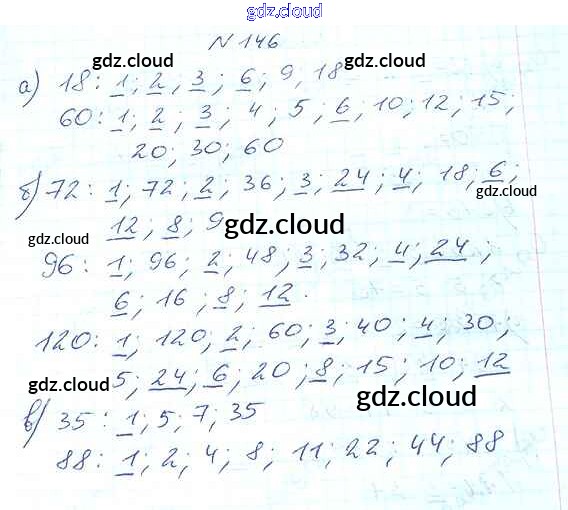 gdz.cloud
N 146
gdz.cloud gdz.cloud
а) 18: 1; 2; 3; 6; 9, 18
gdz.cloud gdz.cloud
60: 1; 2; 3; 4; 5; 6; 10; 12; 15;
20; 30; 60
б) 72: 1; 72; 2; 36; 3; 24; 4; 18; 6;
12; 8; 9
gdz.cloud gdz.cloud gdz.cloud
96: 1; 96; 2; 48; 3; 32; 4; 24;
6; 16; 8; 12.
120: 1; 120; 2; 60; 3; 40; 4; 30;
5; 24; 6; 20; 8; 15; 10; 12
gdz.cloud gdz.cloud
в) 35: 1; 5; 7; 35
88: 1; 2; 4; 8; 11; 22; 44; 88
gdz.cloud gdz.cloud